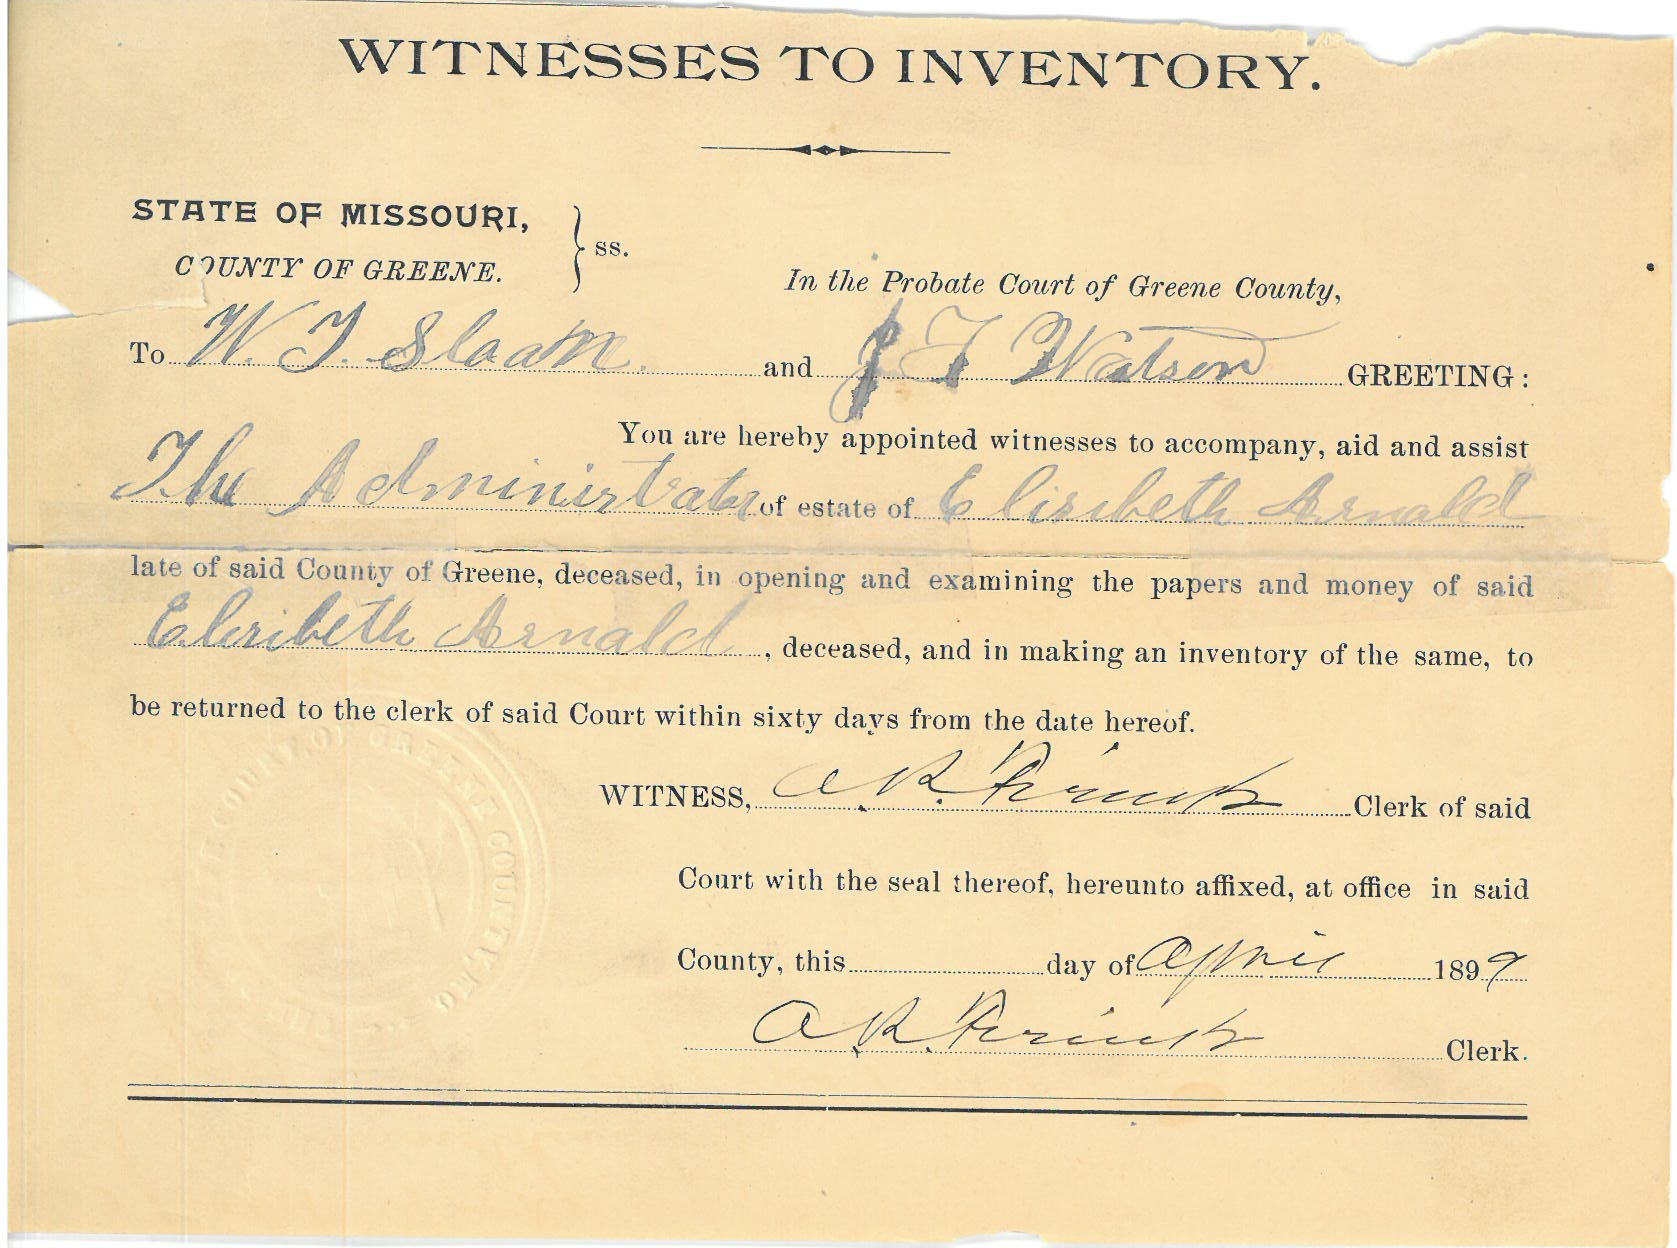 WITNESSES TO INVENTORY.
STATE OF MISSOURI,
COUNTY OF GREENE.
} ss.
In the Probate Court of Greene County,
To W. T. Sloan. and J T Watson GREETING:
You are hereby appointed witnesses to accompany, aid and assist
The Administrator of estate of Elizibeth Arnald
late of said County of Greene, deceased, in opening and examining the papers and money of said
Elizibeth Arnald, deceased, and in making an inventory of the same, to
be returned to the clerk of said Court within sixty days from the date hereof.
WITNESS, A. R. Clerk of said
Court with the seal thereof, hereunto affixed, at office in said
County, this day of April 1899
A. R. Clerk.
COURT OF GREENE COUNTY, MO.